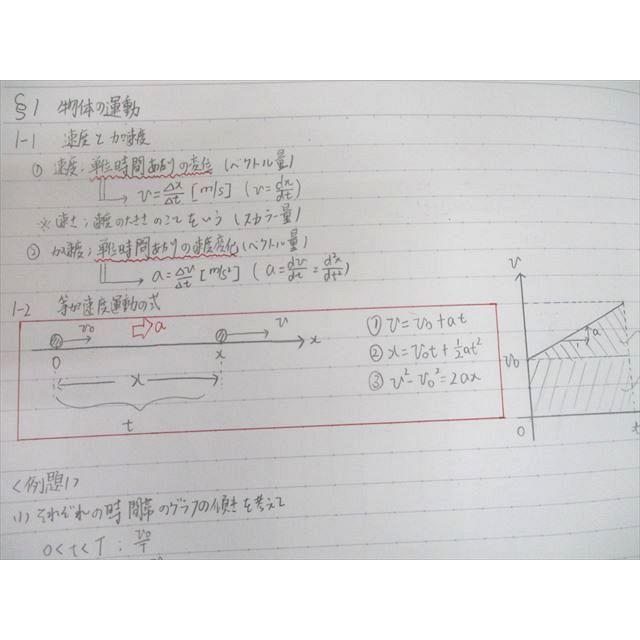 §1 物体の運動
1-1 速度と加速度
① 速度;単位時間あたりの変位(ベクトル量)
→ v=Δx/Δt [m/s] (v=dx/dt)
※速さ;速度の大きさのことをいう(スカラー量)
② 加速度;単位時間あたりの速度変化(ベクトル量)
→ a=Δv/Δt [m/s²] (a=dv/dt=d²x/dt²)
1-2 等加速度運動の式
v₀ a v
0 x x
x
t
① v=v₀+at
② x=v₀t+½at²
③ v²-v₀²=2ax
v
a
v₀
0 t
<例題1>
(1) それぞれの時間帯のグラフの傾きを考えて
0<t<T ; v₀/T